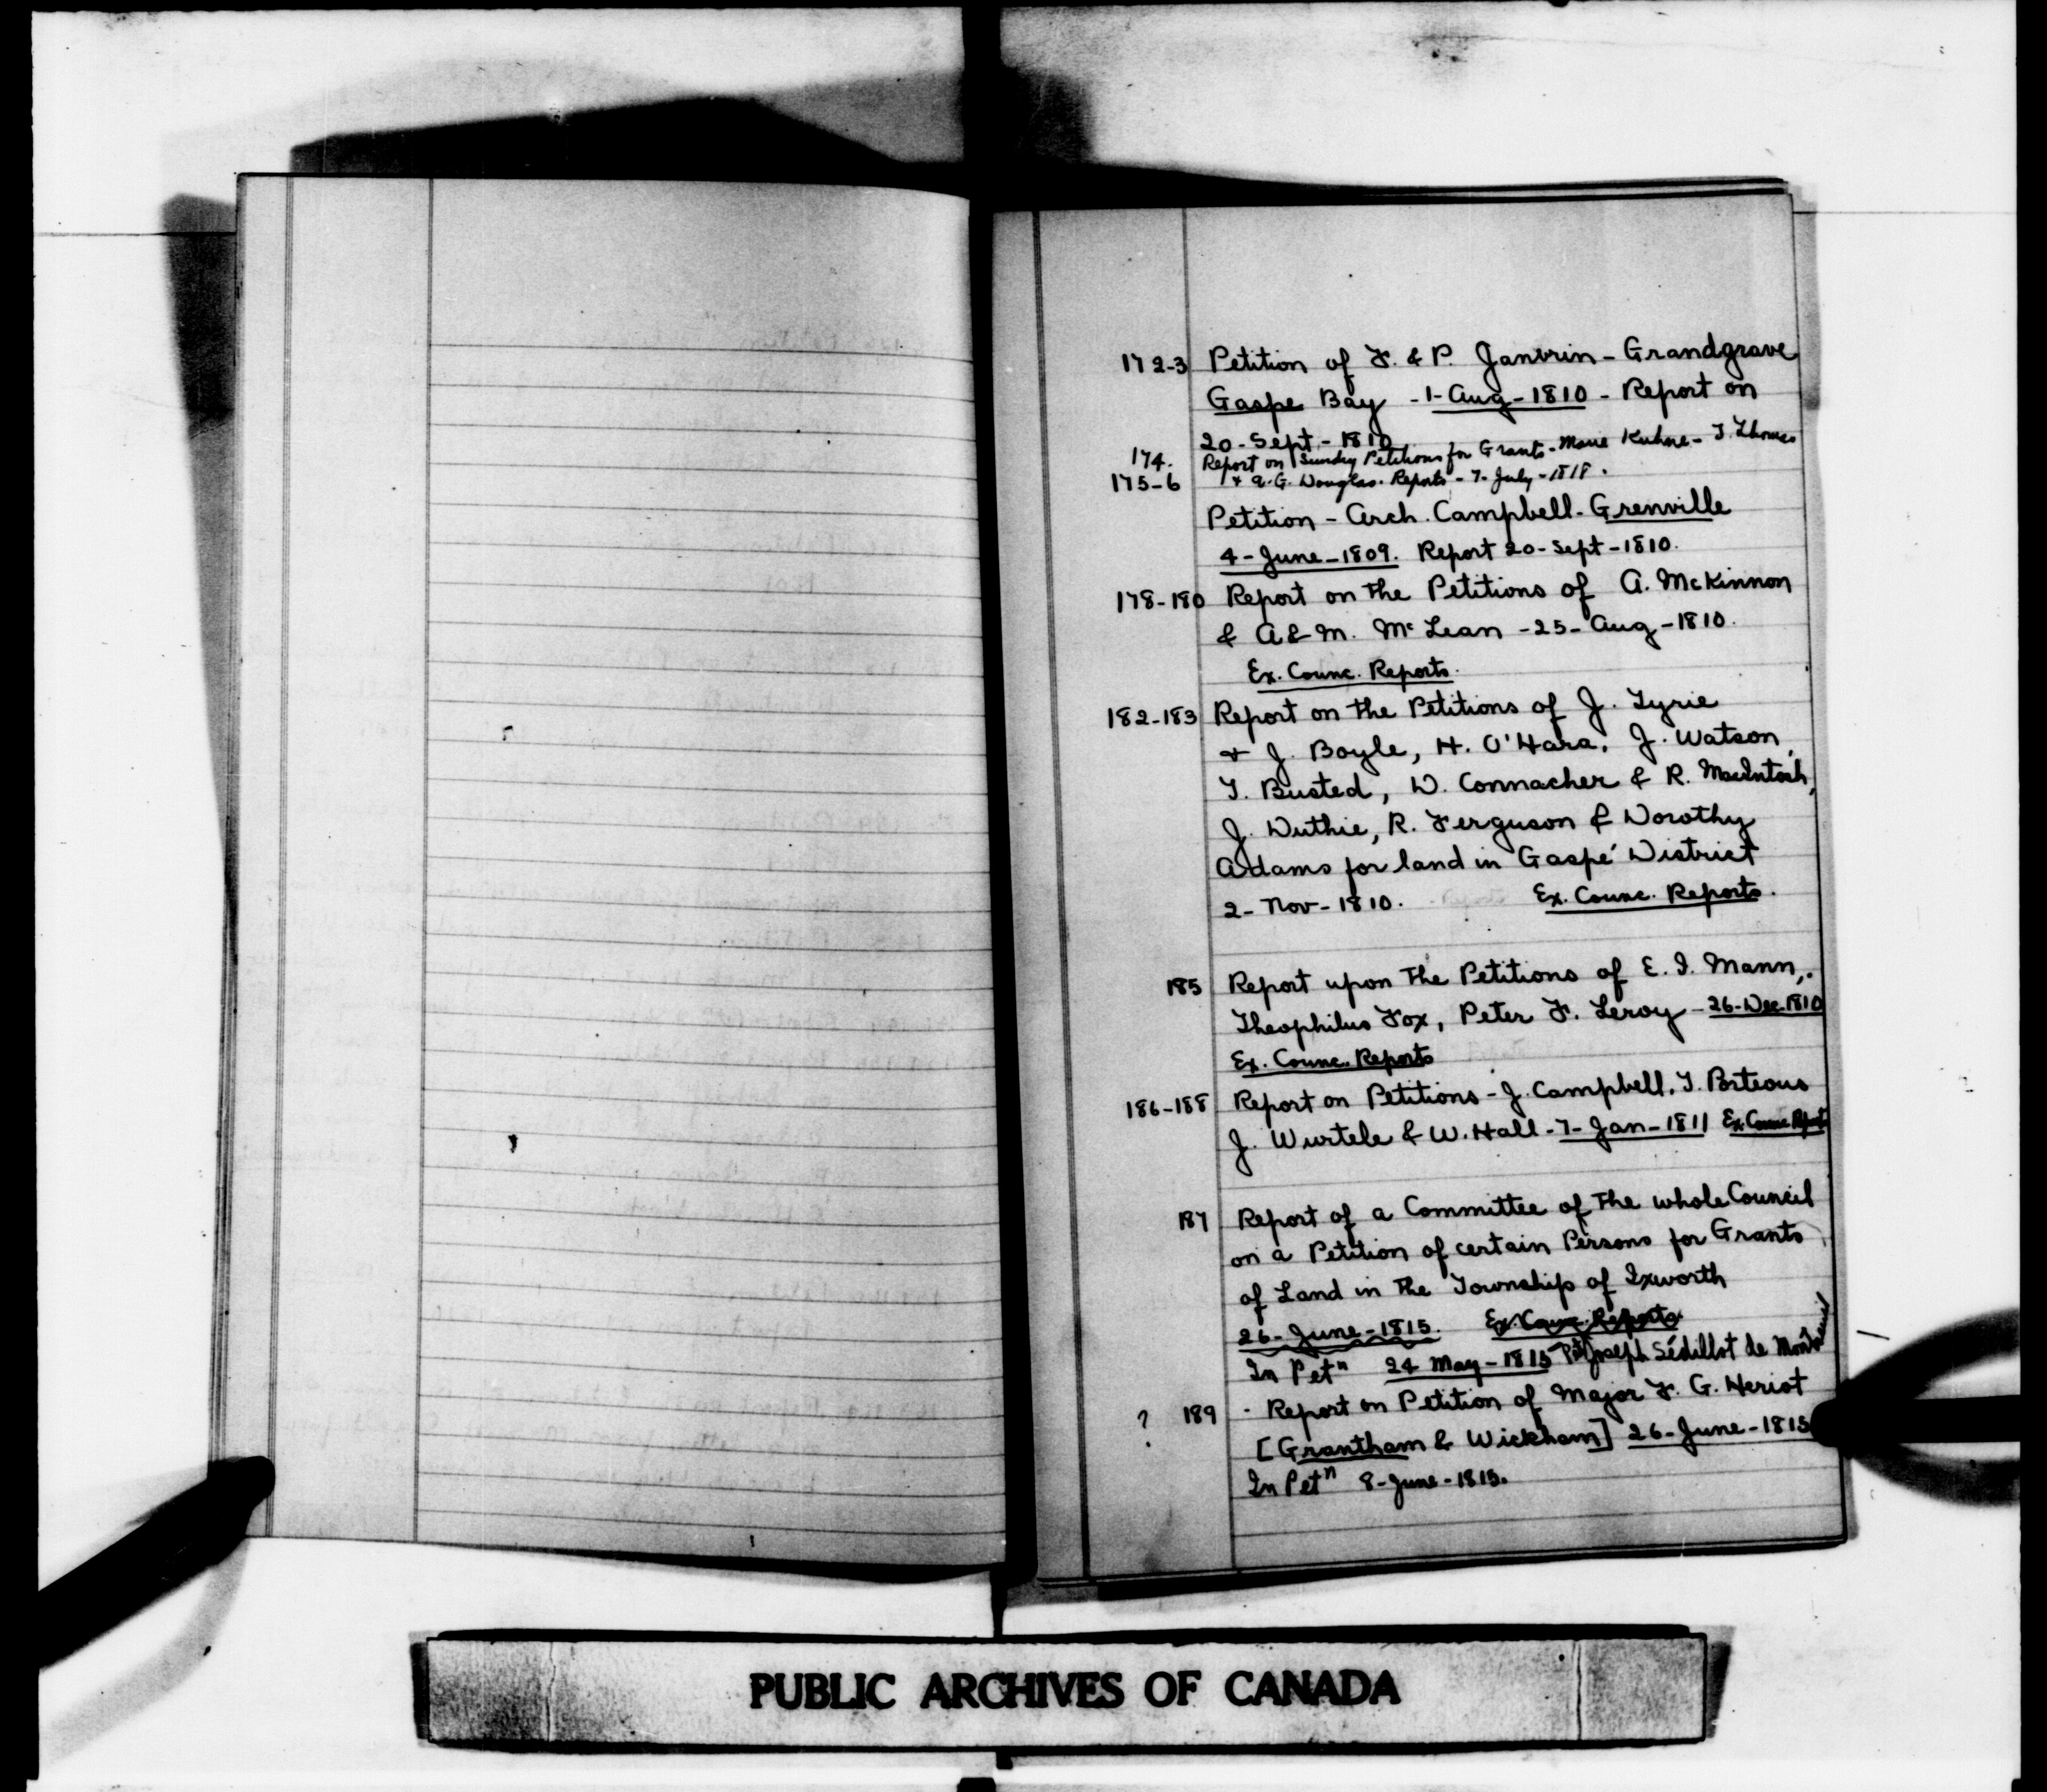 172-3 Petition of F. & P. Janvrin - Grandgrave
Gaspe Bay - 1- Aug - 1810 - Report on
20 - Sept - 1810
174. Report on Sundry Petitions for Grants - Marie Kuhne - T. Thomas
175-6 + A. G. Douglas. Reports - 7- July - 1818.
Petition - Arch. Campbell - Grenville
4 - June - 1809. Report 20 - Sept - 1810.
178-180 Report on the Petitions of A. McKinnon
& A & M. McLean - 25 - Aug - 1810.
Ex. Counc. Reports.
182-183 Report on the Petitions of J. Lyrie
+ J. Boyle, H. O'Hara, J. Watson,
T. Busted, D. Connacher & R. MacIntosh,
J. Duthie, R. Ferguson & Dorothy
Adams for land in Gaspé District
2 - Nov - 1810. Ex. Counc. Reports.
185 Report upon the Petitions of E. I. Mann,.
Theophilus Fox, Peter F. Leroy - 26 - Dec. 1810
Ex. Counc. Reports
186-188 Report on Petitions - J. Campbell, T. Porteous
J. Wurtele & W. Hall - 7 - Jan - 1811 Ex. Counc Report
187 Report of a Committee of the whole Council
on a Petition of certain Persons for Grants
of Land in the Township of Ixworth
26 - June - 1815. Ex. Counc. Reports
In Petn 24 May - 1815 Joseph Sédillot de
? 189 - Report on Petition of Major F. G. Heriot
[Grantham & Wickham] 26 - June - 1815
In Petn 8 - June - 1815.
PUBLIC ARCHIVES OF CANADA